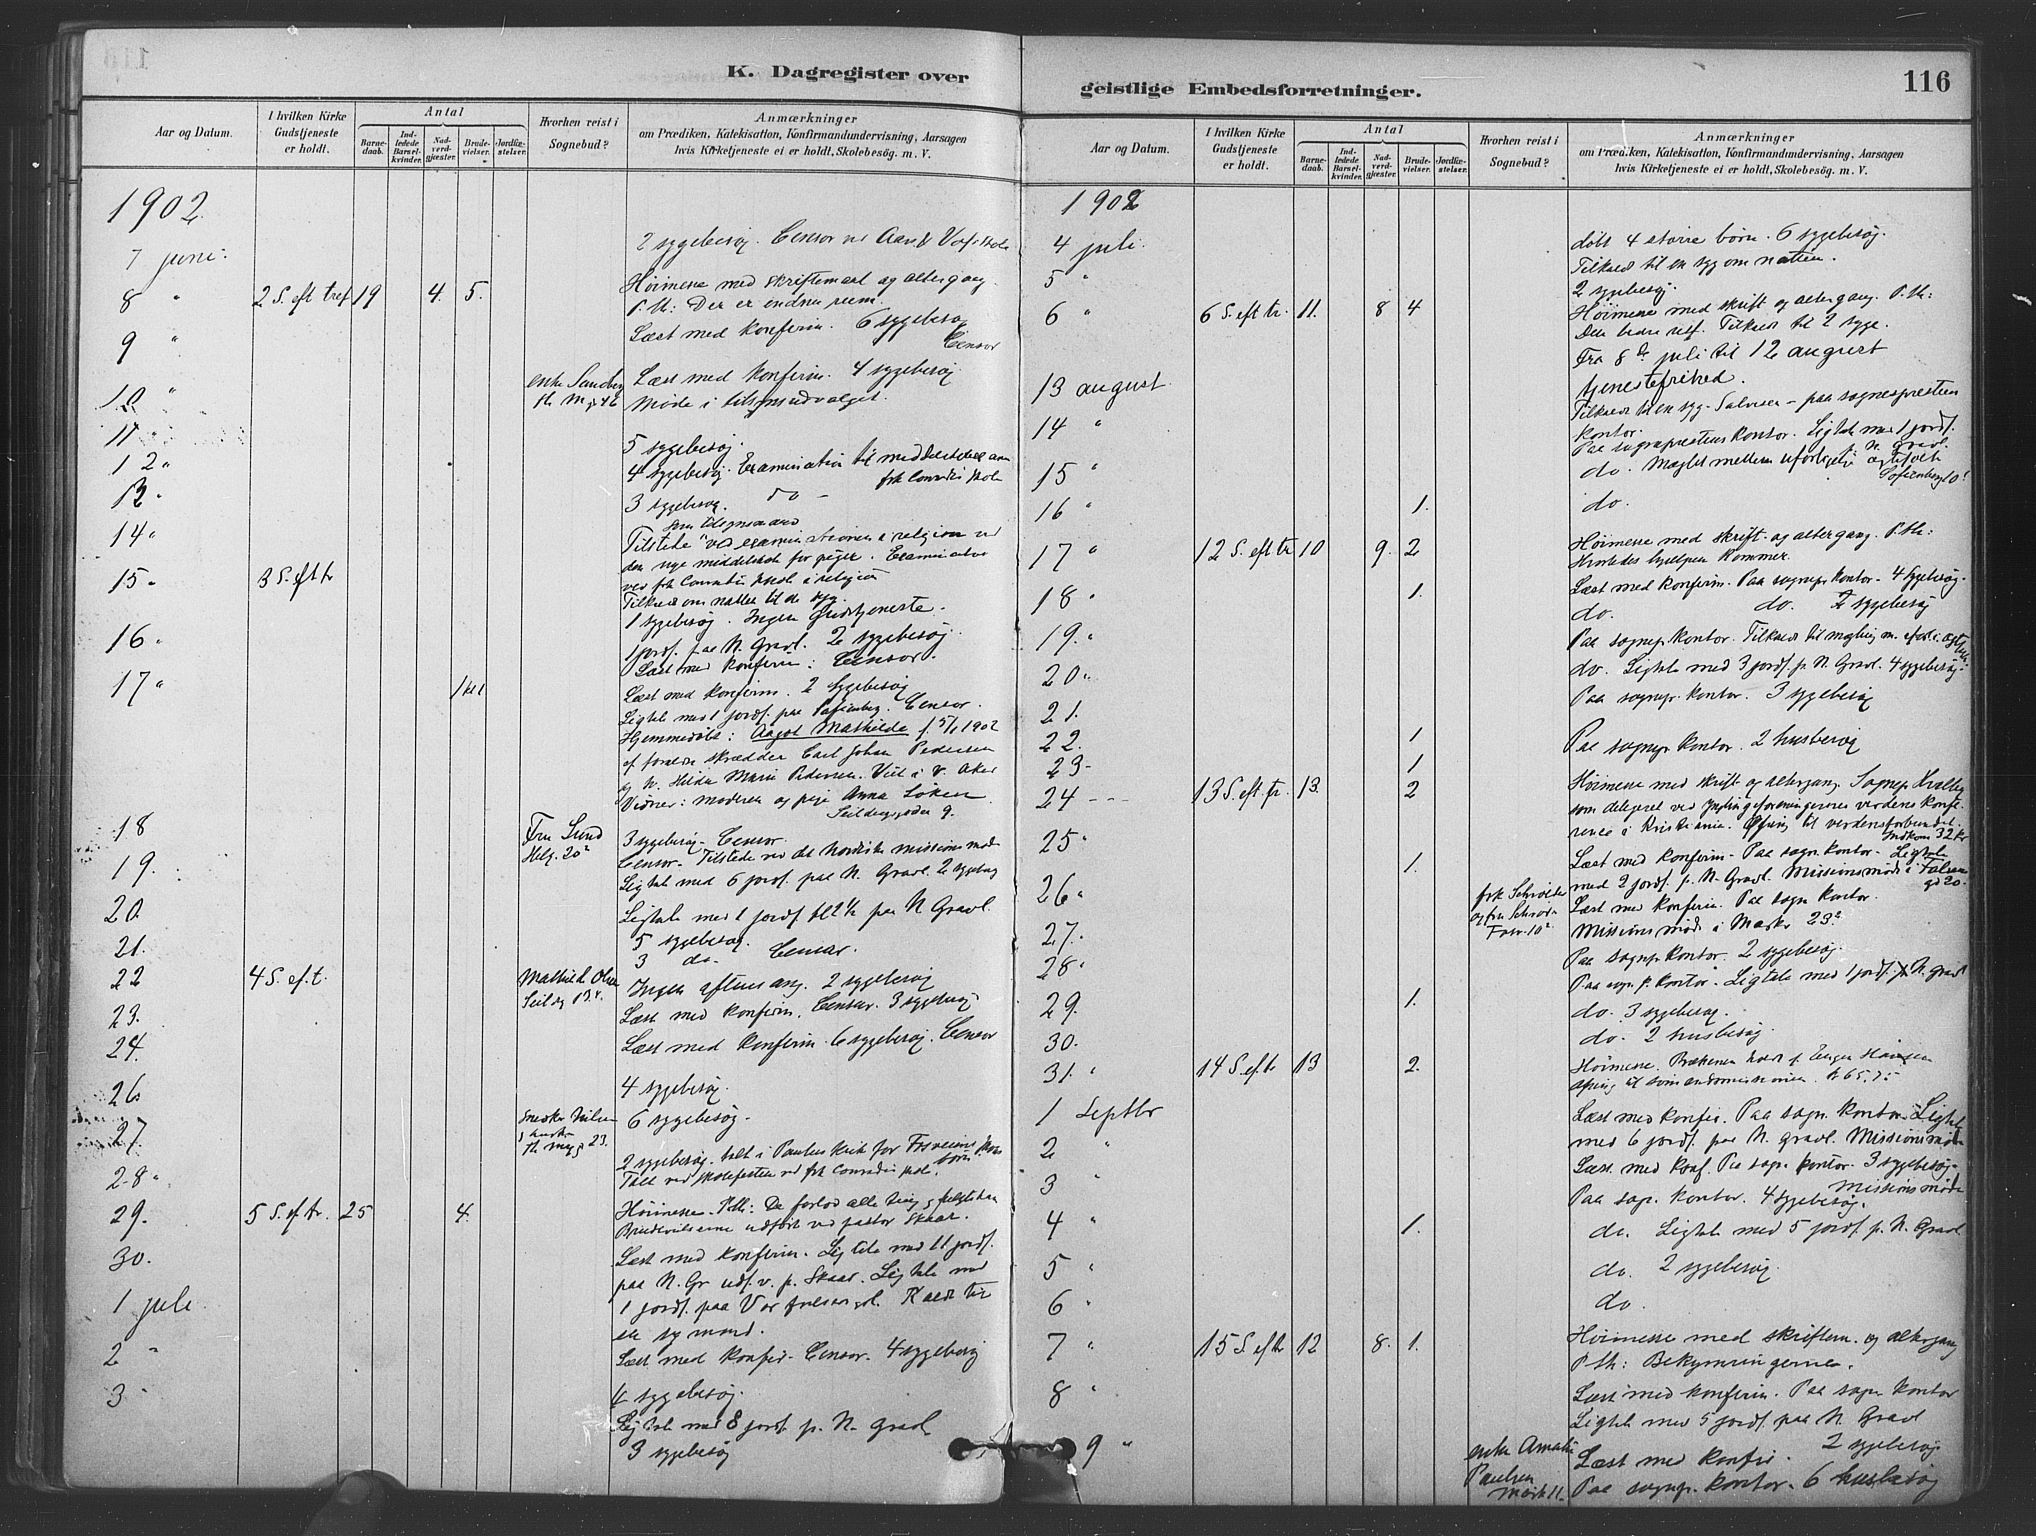 K. Dagregister over
Aar og Datum.
I hvilken Kirke Gudstjeneste er holdt.
Antal
Barnedaab.
Indledede Barselkvinder.
Nadverdgjester.
Brudevielser.
Jordfæstelser.
Hvorhen reist i Sognebud?
Anmærkninger
om Prædiken, Katekisation, Konfirmandundervisning, Aarsagen
hvis Kirketjeneste ei er holdt, Skolebesøg. m. V.
1902.
7 juni. 2 sygebesøg. Censor ved
8 " 2 S. eft tref 19 4. 5. Høimesse med skriftemaal og altergang.
P. th: Der er endnu rum.
9 " Læst med konfirm. 6 sygebesøg
Censor
10 " enke Sandberg Læst med konfirm. 4 sygebesøg
th. M g 46 Møde i tilsynsudvalget.
11 " 5 sygebesøg.
12 " 4 sygebesøg. Examination til middelskole
frk Conradis skole
13 " 3 sygebesøg. do -
som tilsynsmand
14 " Tilstede ved examinationen i religion ved
den nye middelskole for piger. Examination
ved frk Conradis skole i religion
15 " 3 S. eft tr Tilkaldt om natten til de syge.
1 sygebesøg. Ingen Gudstjeneste.
16 " 1 jordf. paa N. Gravl. 2 sygebesøg.
Læst med konfirm: Censor.
17 " 1 Læst med konfirm. 2 sygebesøg
Ligtale med 1 jordf. paa Sofienberg. Censor.
Hjemmedøbt: Aagot Mathilde f. 5/1 1902
af forældre skrædder Carl Johan Pedersen
og h. Hilda Marie Pedersen. Viet i V. Aker
Vidner: moderen og pige Anna Løken
Seildugsgaden 9.
18 Fru Lund 3 sygebesøg. Censor.
Helg. 20²
19. Censor - Tilstede ved det Nordiske missionsmøde
Ligtale med 6 jordf. paa N. Gravl. 2 sygebesøg
20. Ligtale med 1 jordf paa N Gravl.
5 sygebesøg.
21. 3 do - Censor.
22 4 S. ef. t. Mathilde Olsen Ingen aftensang. 2 sygebesøg
Seildg 13
23. Læst med konfirm. Censur. 3 sygebesøg
24. Læst med konfirm. 6 sygebesøg. Censor
26 4 sygebesøg.
27. snedker Nilsen 6 sygebesøg.
th. meyg 23.
28 " 2 sygebesøg. talt i Paulus kirke for
Talt ved skolefesten ved frk Conradis skole.
29. 5 S. ef tr. 25 4. Høimesse. P.th: De forlod alle ting og fulgte ham
Brudevielserne udført ved pastor Skaar.
30. Læst med konfirm. Ligtale med 11 jordf.
paa N. Gr udf. v. p. Skaar. Ligtale med
1 juli. 1 jordf. paa Vor frelsers gl. Kaldt til
en syg mand.
2 " Læst med konfir. Censor. 4 sygebesøg
3 - 4 sygebesøg.
Ligtale med 8 jordf. p. N. Gravl
3 sygebesøg
geistlige Embedsforretninger.
116
Aar og Datum.
I hvilken Kirke Gudstjeneste er holdt.
Antal
Barnedaab.
Indledede Barselkvinder.
Nadverdgjester.
Brudevielser.
Jordfæstelser.
Hvorhen reist i Sognebud?
Anmærkninger
om Prædiken, Katekisation, Konfirmandundervisning, Aarsagen
hvis Kirketjeneste ei er holdt, Skolebesøg. m. V.
1902
4 juli. døbt 4 større børn. 6 sygebesøg.
5 " Tilkaldt til en syg om natten.
2 sygebesøg.
6 " 6 S. eft tr. 11. 8 4 Høimesse med skrift og altergang. P. th:
Tilkaldt til 2 syge.
Fra 8de juli til 12 august
tjenestefrihed.
13 august. Tilkaldt til en syg - paa sognepresten
kontor.
14 " Paa sogneprestens kontor. Ligtale med 1 jordf.
N. gravl
15 " do. Mæglet mellem uforligelige ægtefolk
Sofienberg
16 " 1. do.
17 " 12 S. eft tr 10 9. 2 Høimesse med skrift- og altergang. P.th:
Hvorledes hjælpen kommer.
18 " 1. Læst med konfirm. Paa sognepr. kontor - 4 sygebesøg.
19. " do. do. 2 sygebesøg
20 " Paa sognep. kontor. Tilkaldt til mægling m.
21. do. Ligtale med 3 jordf. p. N. Gravl. 4 sygebesøg.
22. 1 Paa sognep. kontor. 3 sygebesøg
23 - 1 Paa sognepr kontor. 2 husbesøg
24 - - - 13 S. eft. tr. 13. 2 Høimesse med skrift og altergang. Sognep Hvalby
som delegeret ved Ynglingeforeningernes verdenskonfe-
rence i Kristiania. Ofring til verdensforbundet.
Indkom 32 kr
25 " 1. Læst med konfirm - Paa sogn. kontor - Ligtale
med 2 jordf. p. N. Gravl. Missionsmøde i Falsen
gd 20.
26 " frk Schrøder Læst med konfirm. Paa sogn kontor.
og fru Schrøder Missionsmøde i Markv 23²
Fossv. 10²
27. " Paa sognep. kontor. 2 sygebesøg.
28 " Paa sogn. p. kontor. Ligtale med 1 jordf. p. N. gravl
29. 1. do. 3 sygebesøg.
30. do. 2 husbesøg.
31. " 14 S. ef tr 13 2. Høimesse. Prækenen holdt af Eugen Hansen
ofring til sømandsmissionen. kr 65.75
1 Septbr Læst med konfir. Paa sogn. kontor. Ligtale
med 6 jordf. paa N. gravl. Missionsmøde
2 " Læst. med konf. Paa sogn. kontor. 3 sygebesøg.
Missionsmøde
3 " Paa sogn. kontor. 4 sygebesøg.
4 " 1. do. Ligtale med 5 jordf. p. N. Gravl
5 " do. 2 sygebesøg.
6 " do.
7 " 15 S. ef tr 12 8. 1. Høimesse med skriftem. og altergang
P th: Bekymringerne.
8 " Læst med konfirm. Paa sogn kontor
Ligtale med 5 jordf. paa N. Gravl
2 sygebesøg.
9 " enke Amalie Læst med konfir.
Paulsen Paa sognep. kontor. 6 husbesøg
Markv 11.